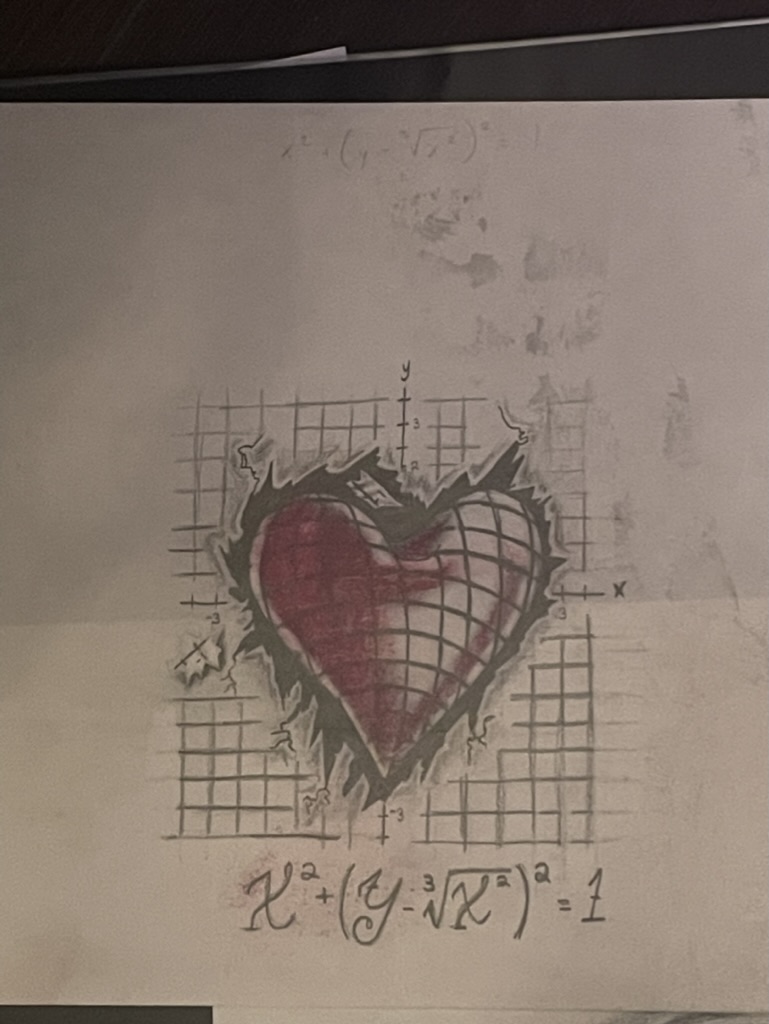 x² + (y - ³√x²)² = 1
y
3
2
x
-3
3
-3
X² + (Y - ³√X²)² = 1